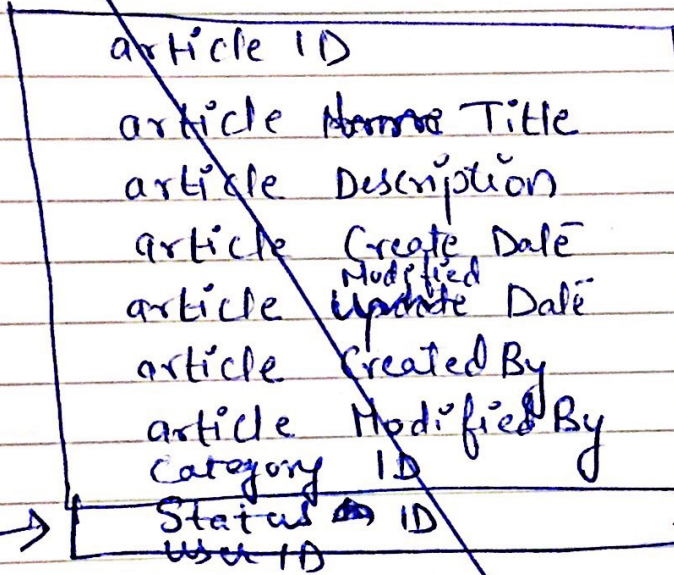 article ID
article Title
article Description
article Create Date
article Modified Date
article Created By
article Modified By
Category ID
Status ID
User ID